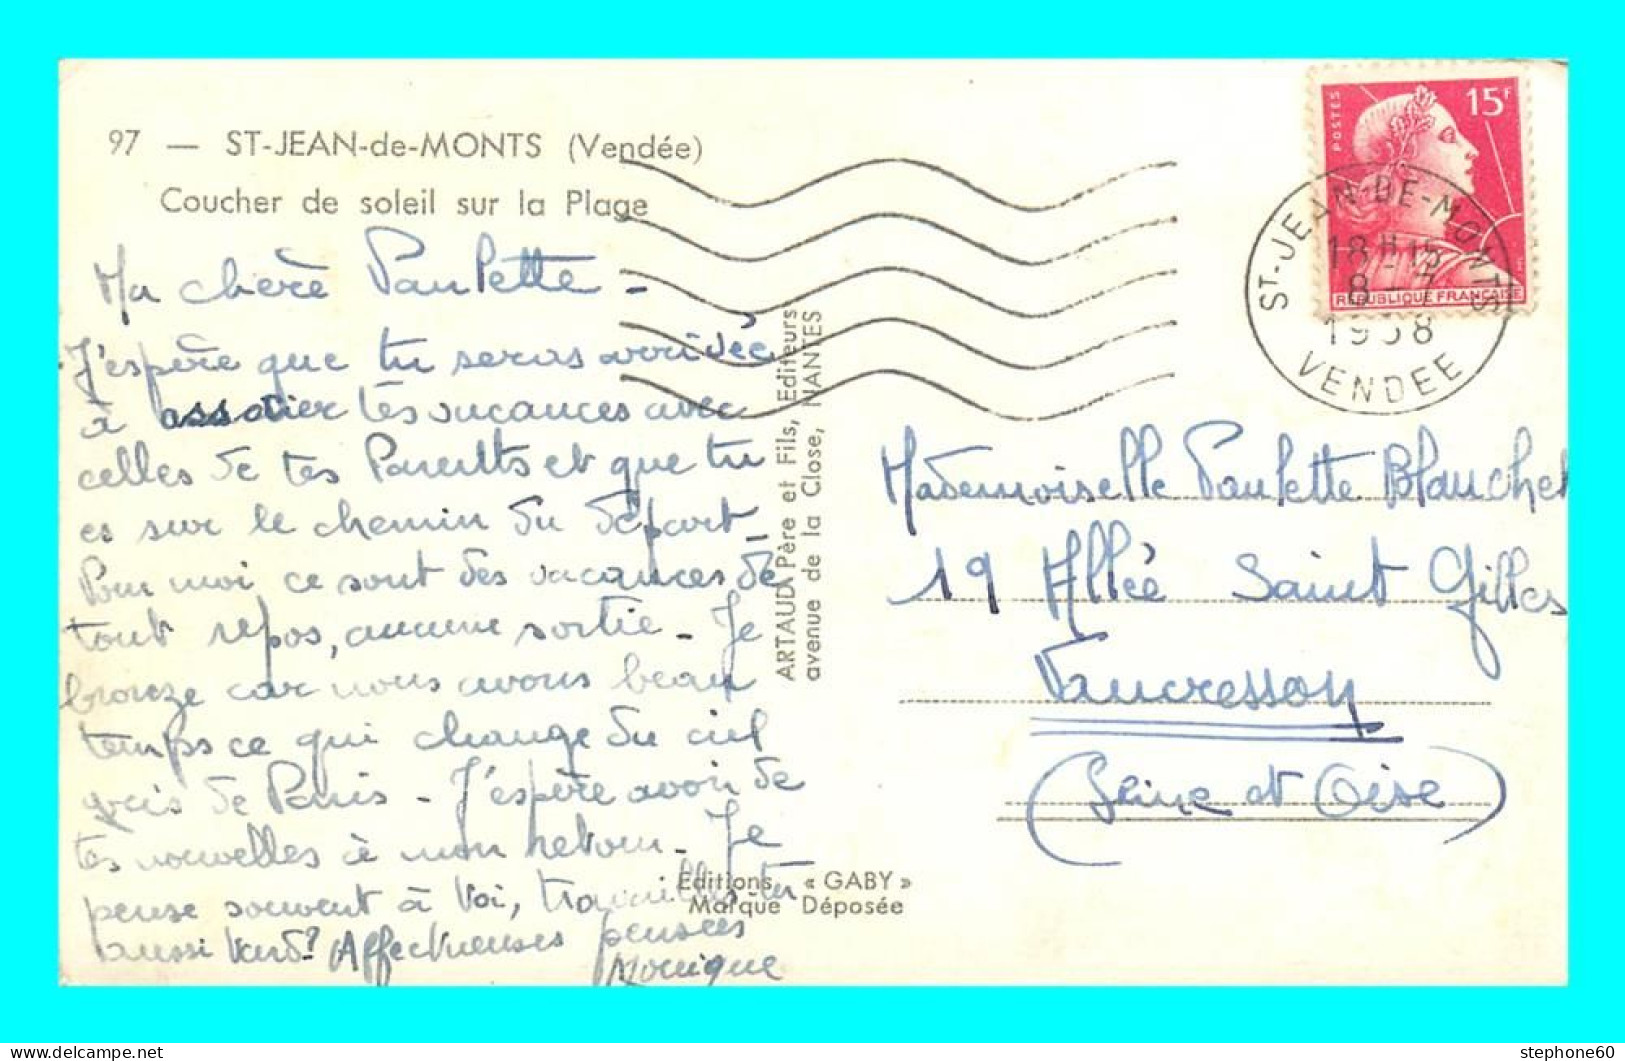 97 — ST-JEAN-de-MONTS (Vendée)
Coucher de soleil sur la Plage
Ma chère Paulette -
J'espère que tu seras arrivée
à associer tes vacances avec
celles de tes Parents et que tu
es sur le chemin du départ -
Pour moi ce sont des vacances de
tout repos, aucune sortie - Je
bronze car nous avons beau
temps ce qui change du ciel
gris de Paris - J'espère avoir de
tes nouvelles à mon retour - Je
pense souvent à toi, travailles tu
aussi tard? Affectueuses pensées
Monique
ARTAUD Père et Fils, Editeurs
avenue de la Close, NANTES
Editions « GABY »
Marque Déposée
POSTES
15F
REPUBLIQUE FRANÇAISE
ST-JEAN-DE-MONTS
18H15
8-7
1958
VENDEE
Mademoiselle Paulette Blanchet
19 Allée Saint Gilles
Vaucresson
(Seine et Oise)
stephone60